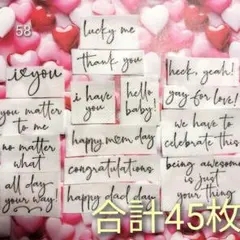 58
lucky me
thank you
i you
i have
you
hello
baby!
heck, yeah!
yay for love!
you matter
to me
happy mom day
we have to
celebrate this
no matter
what
congratulations
being awesome
is just
your thing
all day
your way!
happy dad day
合計45枚